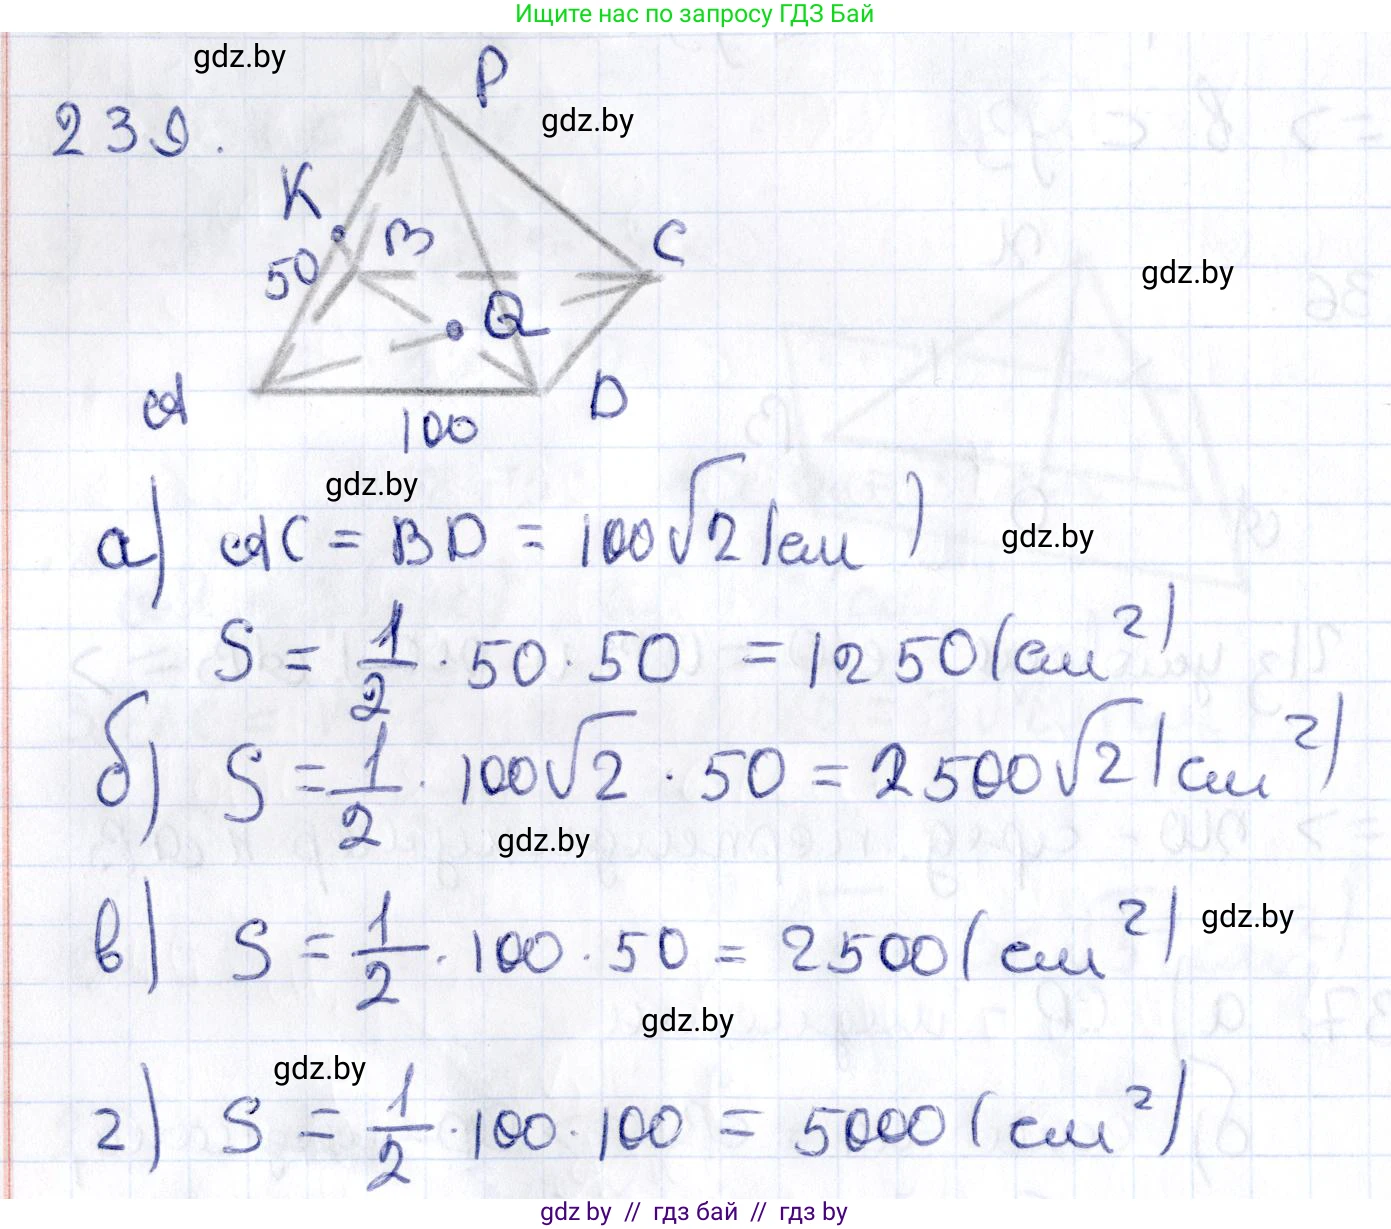 Ищите нас по запросу ГДЗ Бай
gdz.by
P
239.
gdz.by
K
B
C
50
gdz.by
Q
A
D
100
gdz.by
а) AC = BD = 100√2 (см)
gdz.by
S = 1/2 · 50 · 50 = 1250 (см²)
б) S = 1/2 · 100√2 · 50 = 2500√2 (см²)
gdz.by
в) S = 1/2 · 100 · 50 = 2500 (см²)
gdz.by
gdz.by
gdz.by
г) S = 1/2 · 100 · 100 = 5000 (см²)
gdz.by // гдз бай // гдз by